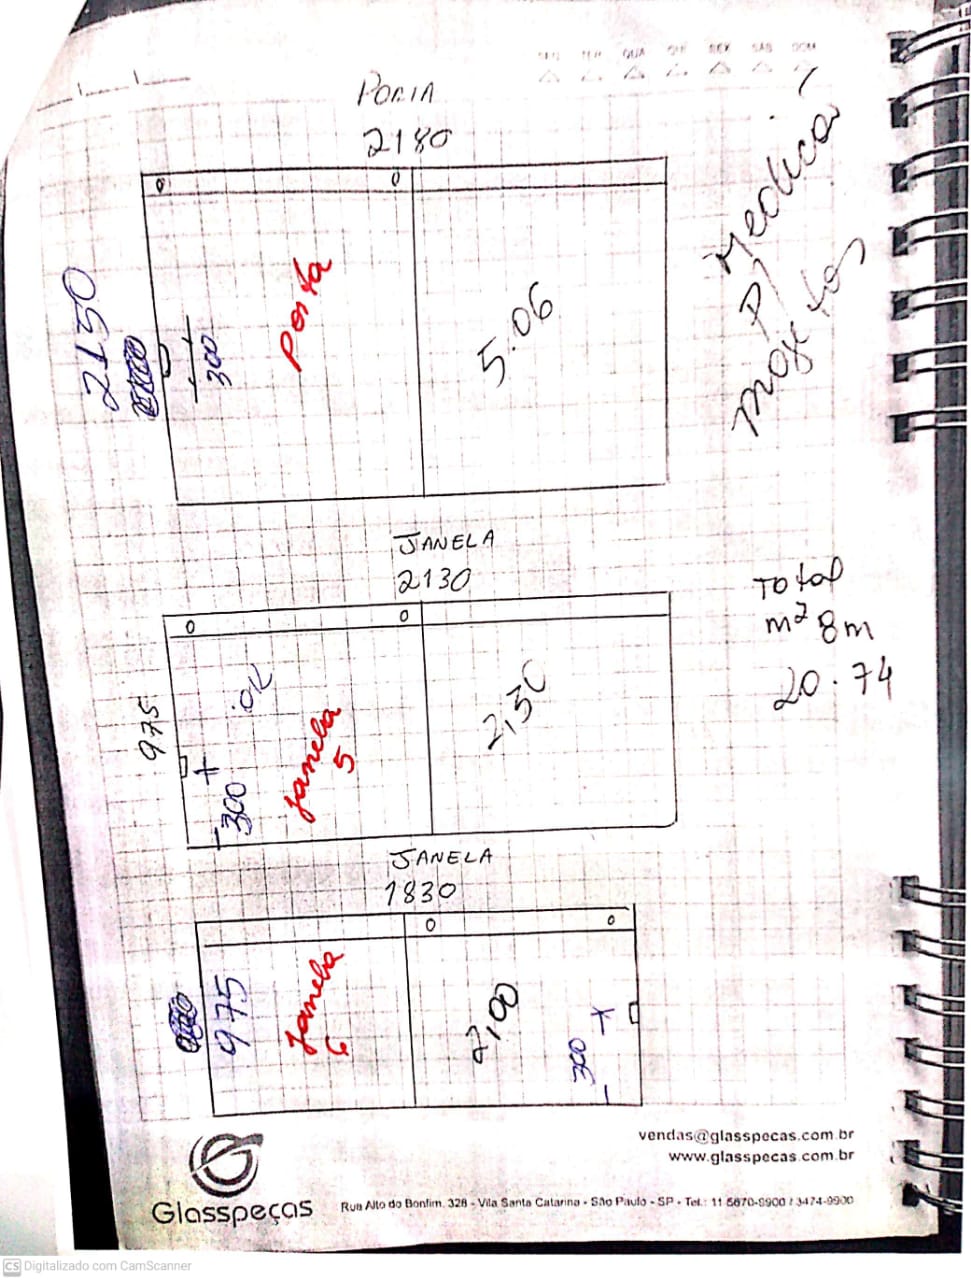 SEG TER QUA QUI SEX SAB DOM
PORTA
2180
Medicao
P/
2150
300
Porta
5.06
JANELA
2130
Total
m² 8m
20.74
975
OK
300
Janela
5
2,30
JANELA
1830
975
Janela
6
2,00
300
vendas@glasspecas.com.br
www.glasspecas.com.br
Glasspeças
Rua Alto do Bonfim, 328 - Vila Santa Catarina - São Paulo - SP - Tel.: 11 5670-9900 / 3474-9900
CS Digitalizado com CamScanner